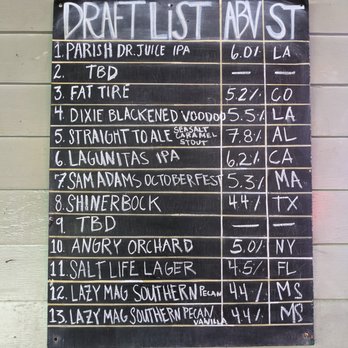 DRAFT LIST ABV ST
1. PARISH DR. JUICE IPA 6.0% LA
2. TBD — —
3. FAT TIRE 5.2% CO
4. DIXIE BLACKENED VOODOO 5.5% LA
5. STRAIGHT TO ALE SEA SALT CARAMEL STOUT 7.8% AL
6. LAGUNITAS IPA 6.2% CA
7. SAM ADAMS OCTOBERFEST 5.3% MA
8. SHINERBOCK 4.4% TX
9. TBD — —
10. ANGRY ORCHARD 5.0% NY
11. SALT LIFE LAGER 4.5% FL
12. LAZY MAG SOUTHERN PECAN 4.4% MS
13. LAZY MAG SOUTHERN PECAN VANILLA 4.4% MS